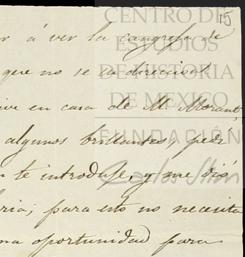 15
CENTRO DE
ESTUDIOS
DE HISTORIA
DE MEXICO
FUNDACIÓN
Carlos Slim
r á ver la cangrea de
que no se
ive en casa de M. Morant,
algunos brillantes, pedi
te introduje, y me dió
ria; para esto no necesita
na oportunidad para